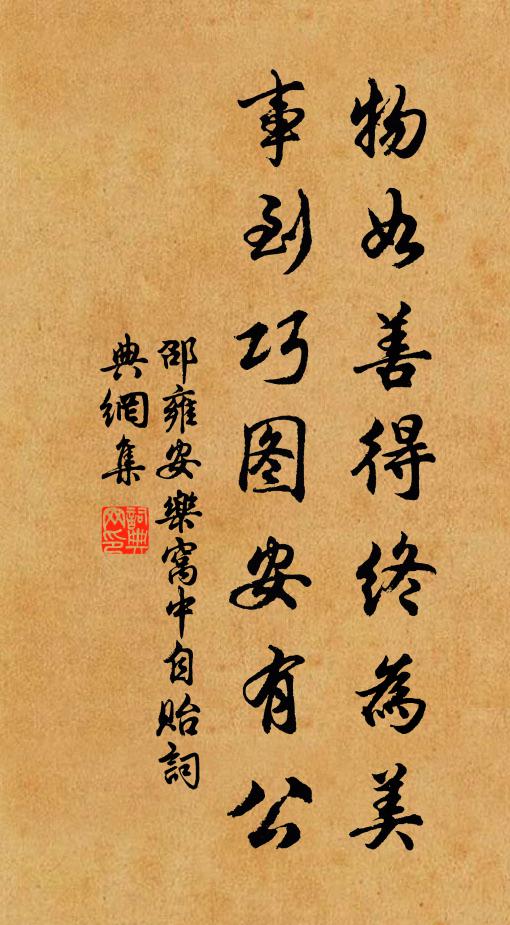 物如善得终為美
事到巧图安有公
邵雍安樂窩中自貽詞
典網集
詞典網印